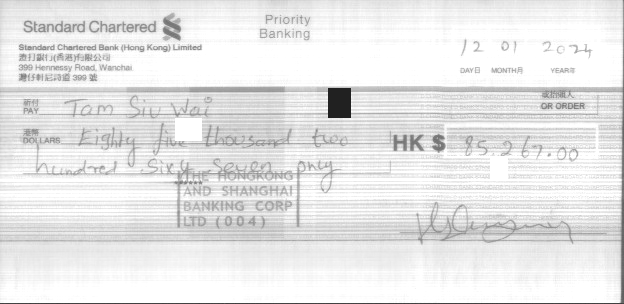 Standard Chartered
Priority
Banking
Standard Chartered Bank (Hong Kong) Limited
渣打銀行(香港)有限公司
399 Hennessy Road, Wanchai
灣仔軒尼詩道 399 號
12 01 2024
DAY日 MONTH月 YEAR年
祈付
PAY
Tam Siu Wai
或持票人
OR ORDER
港幣
DOLLARS
Eighty five thousand two
hundred Sixty Seven only
HK $
85,267.00
THE HONGKONG
AND SHANGHAI
BANKING CORP
LTD (004)